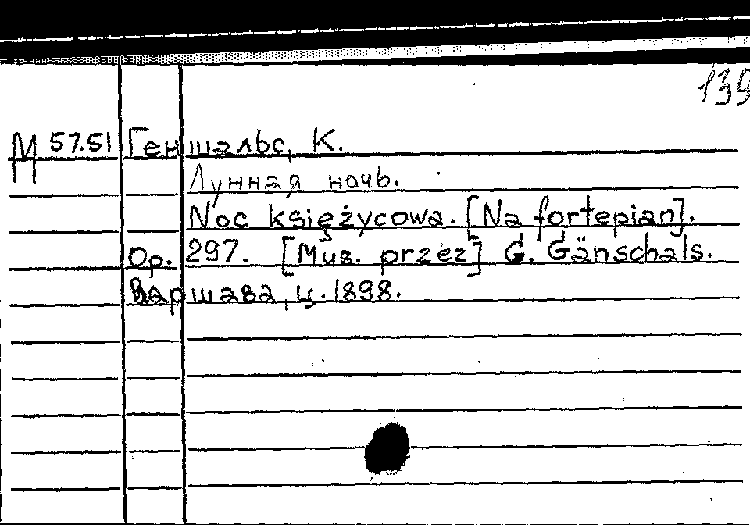 139
М 57.51 Геншальс, К.
Лунная ночь.
Noc księżycowa. [Na fortepian].
Op. 297. [Muz. przez] G. Gänschals.
Варшава, ц. 1898.